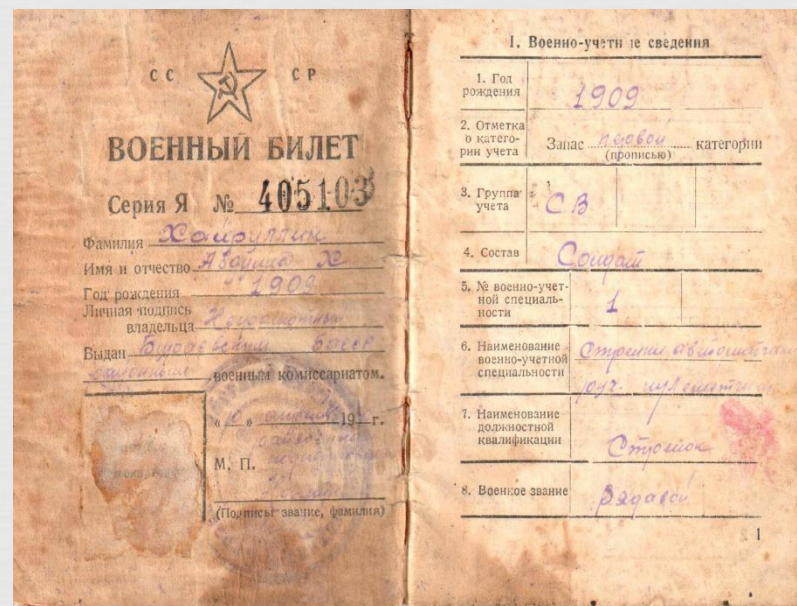 СС СР
ВОЕННЫЙ БИЛЕТ
Серия Я № 405103
Фамилия Хайруллин
Имя и отчество Х
Год рождения 1909
Личная подпись
владельца Неграмотный
Выдан Бураевским БАССР
районным военным комиссариатом.
« 10 » 19 г.
М. П.
(Подпись, звание, фамилия)
I. Военно-учетные сведения
1. Год
рождения
1909
2. Отметка
о катего-
рии учета
Запас первой категории
(прописью)
3. Группа
учета
СВ
4. Состав
Солдат
5. № военно-учет-
ной специаль-
ности
1
6. Наименование
военно-учетной
специальности
Стрелки
руч.
7. Наименование
должностной
квалификации
Стрелок
8. Военное звание
Рядовой
1